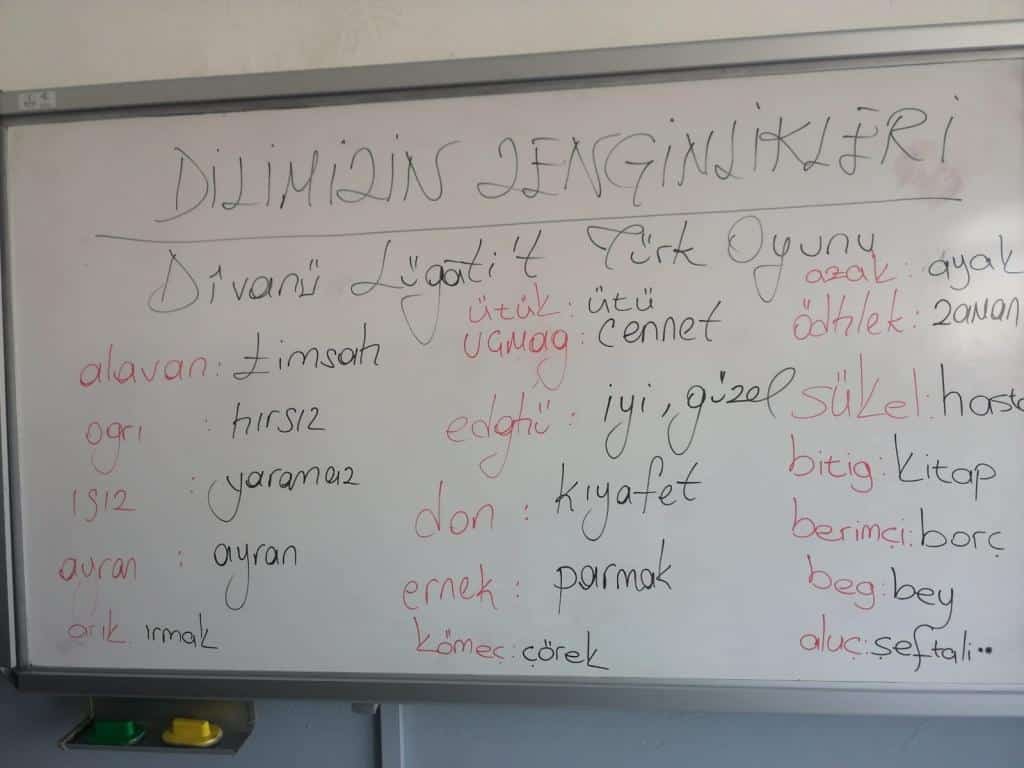 DİLİMİZİN ZENGİNLİKLERİ
Dîvanü Lügati't Türk Oyunu
alavan: timsah
ogrı : hırsız
ışız : yaramaz
ayran : ayran
arık ırmak
ütük: ütü
uçmag: cennet
edghü: iyi, güzel
don : kıyafet
ernek : parmak
kömeç: çörek
azak: ayak
ödhlek: zaman
sükel: hasta
bitig: kitap
berimçi: borç
beg: bey
aluç: şeftali..